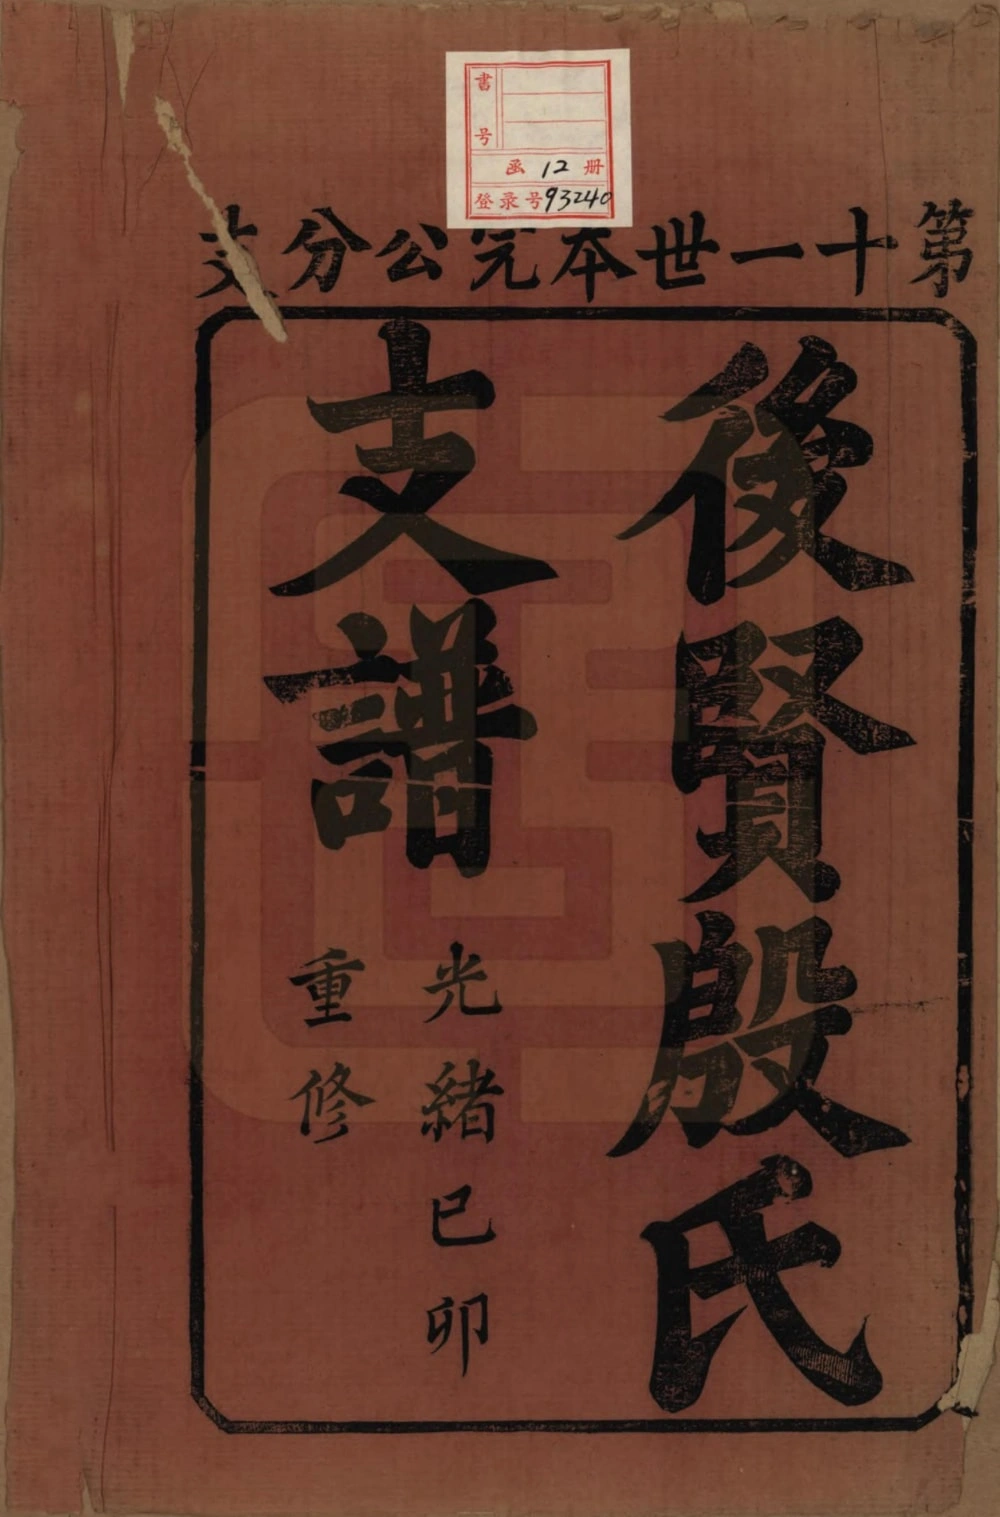 書号
函 12 册
登录号 93240
第十一世本完公分支
後賢殷氏
支譜
光緒己卯
重修